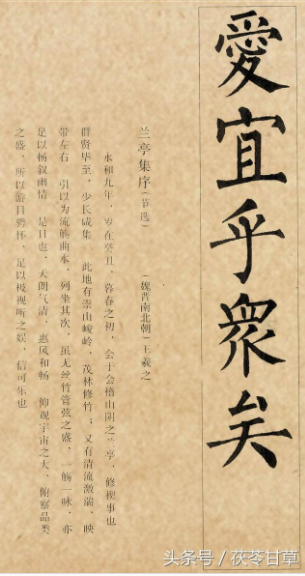 愛宜乎衆矣
兰亭集序(节选) (魏晋南北朝)王羲之
永和九年,岁在癸丑,暮春之初,会于会稽山阴之兰亭,修禊事也
群贤毕至,少长咸集 此地有崇山峻岭,茂林修竹;又有清流激湍,映
带左右 引以为流觞曲水,列坐其次,虽无丝竹管弦之盛 一觞一咏,亦
足以畅叙幽情 是日也,天朗气清,惠风和畅 仰观宇宙之大,俯察品类
之盛,所以游目骋怀,足以极视听之娱,信可乐也
头条号 / 茯苓甘草